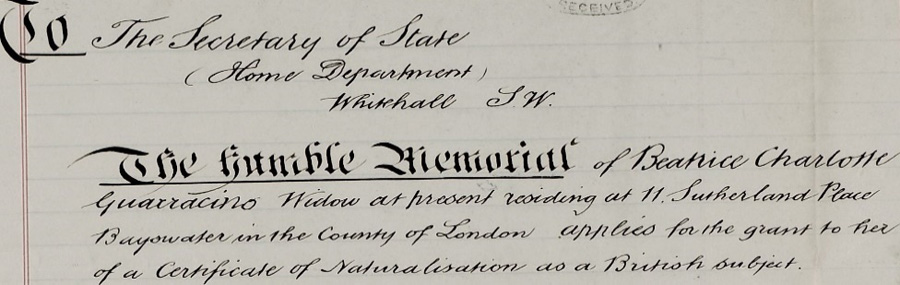 RECEIVED
To The Secretary of State
(Home Department)
Whitehall S.W.
The Humble Memorial of Beatrice Charlotte
Guarracino Widow at present residing at 11. Sutherland Place
Bayswater in the County of London applies for the grant to her
of a Certificate of Naturalisation as a British subject.